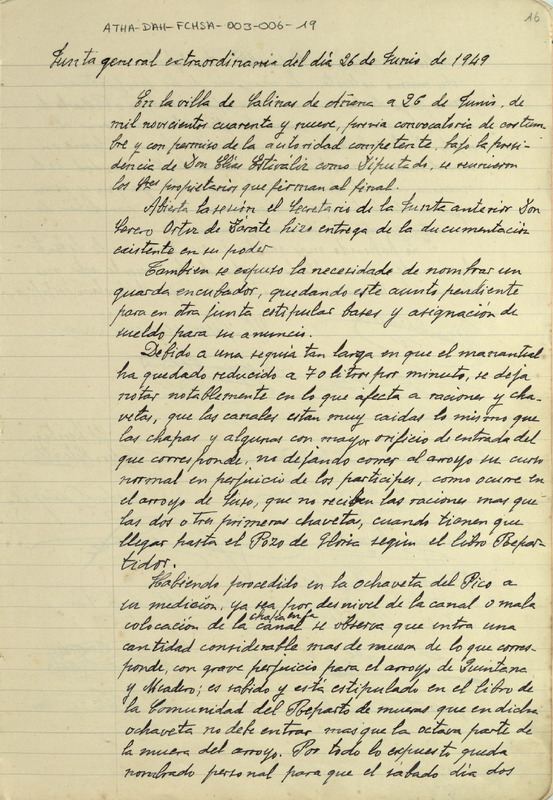 ATHA-DAH-FCHSA-003-006-19
16
Junta general extraordinaria del día 26 de Junio de 1949
En la villa de Salinas de Añana a 26 de Junio, de
mil novecientos cuarenta y nueve, previa convocatoria de costum-
bre y con permiso de la autoridad competente, bajo la presi-
dencia de Don Elías Estiváliz como Diputado, se reunieron
los Sres propietarios que firman al final.
Abierta la sesión el Secretario de la Junta anterior Don
Severo Ortiz de Zárate hizo entrega de la documentación
existente en su poder
Tambien se expuso la necesidad de nombrar un
guarda encubador, quedando este asunto pendiente
para en otra junta estipular bases y asignación de
sueldo para su anuncio.
Debido a una sequia tan larga en que el manantial
ha quedado reducido a 70 litros por minuto, se deja
notar notablemente en lo que afecta a raciones y cha-
vetas, que las canales estan muy caidas lo mismo que
las chapas y algunas con mayor orificio de entrada del
que corresponde, no dejando correr al arroyo su curso
normal en perjuicio de los participes, como ocurre en
el arroyo de Suso, que no reciben las raciones mas que
las dos o tres primeras chavetas, cuando tienen que
llegar hasta el Pozo de Gloria según el libro Repar-
tidor.
Habiendo procedido en la ochaveta del Pico a
su medición, ya sea por desnivel de la canal o mala
colocación de la chapa en la canal se observa que entra una
cantidad considerable mas de muera de lo que corres-
ponde, con grave perjuicio para el arroyo de Quintana
y Madero; es sabido y está estipulado en el libro de
la Comunidad del Reparto de mueras que en dicha
ochaveta no debe entrar mas que la octava parte de
la muera del arroyo. Por todo lo expuesto queda
nombrado personal para que el sábado día dos